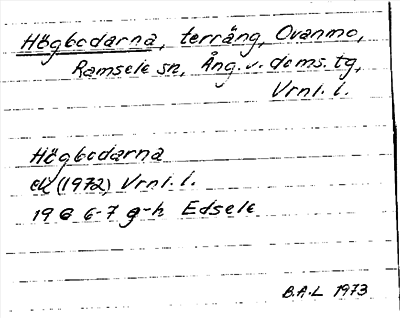 Högbodarna, terräng, Ovanmo,
Ramsele sn, Ång.v. doms. tg,
Vrnl. l.
Högbodarna
ek (1972) Vrnl. l.
19 G 6-7 g-h Edsele
B.A-L 1973